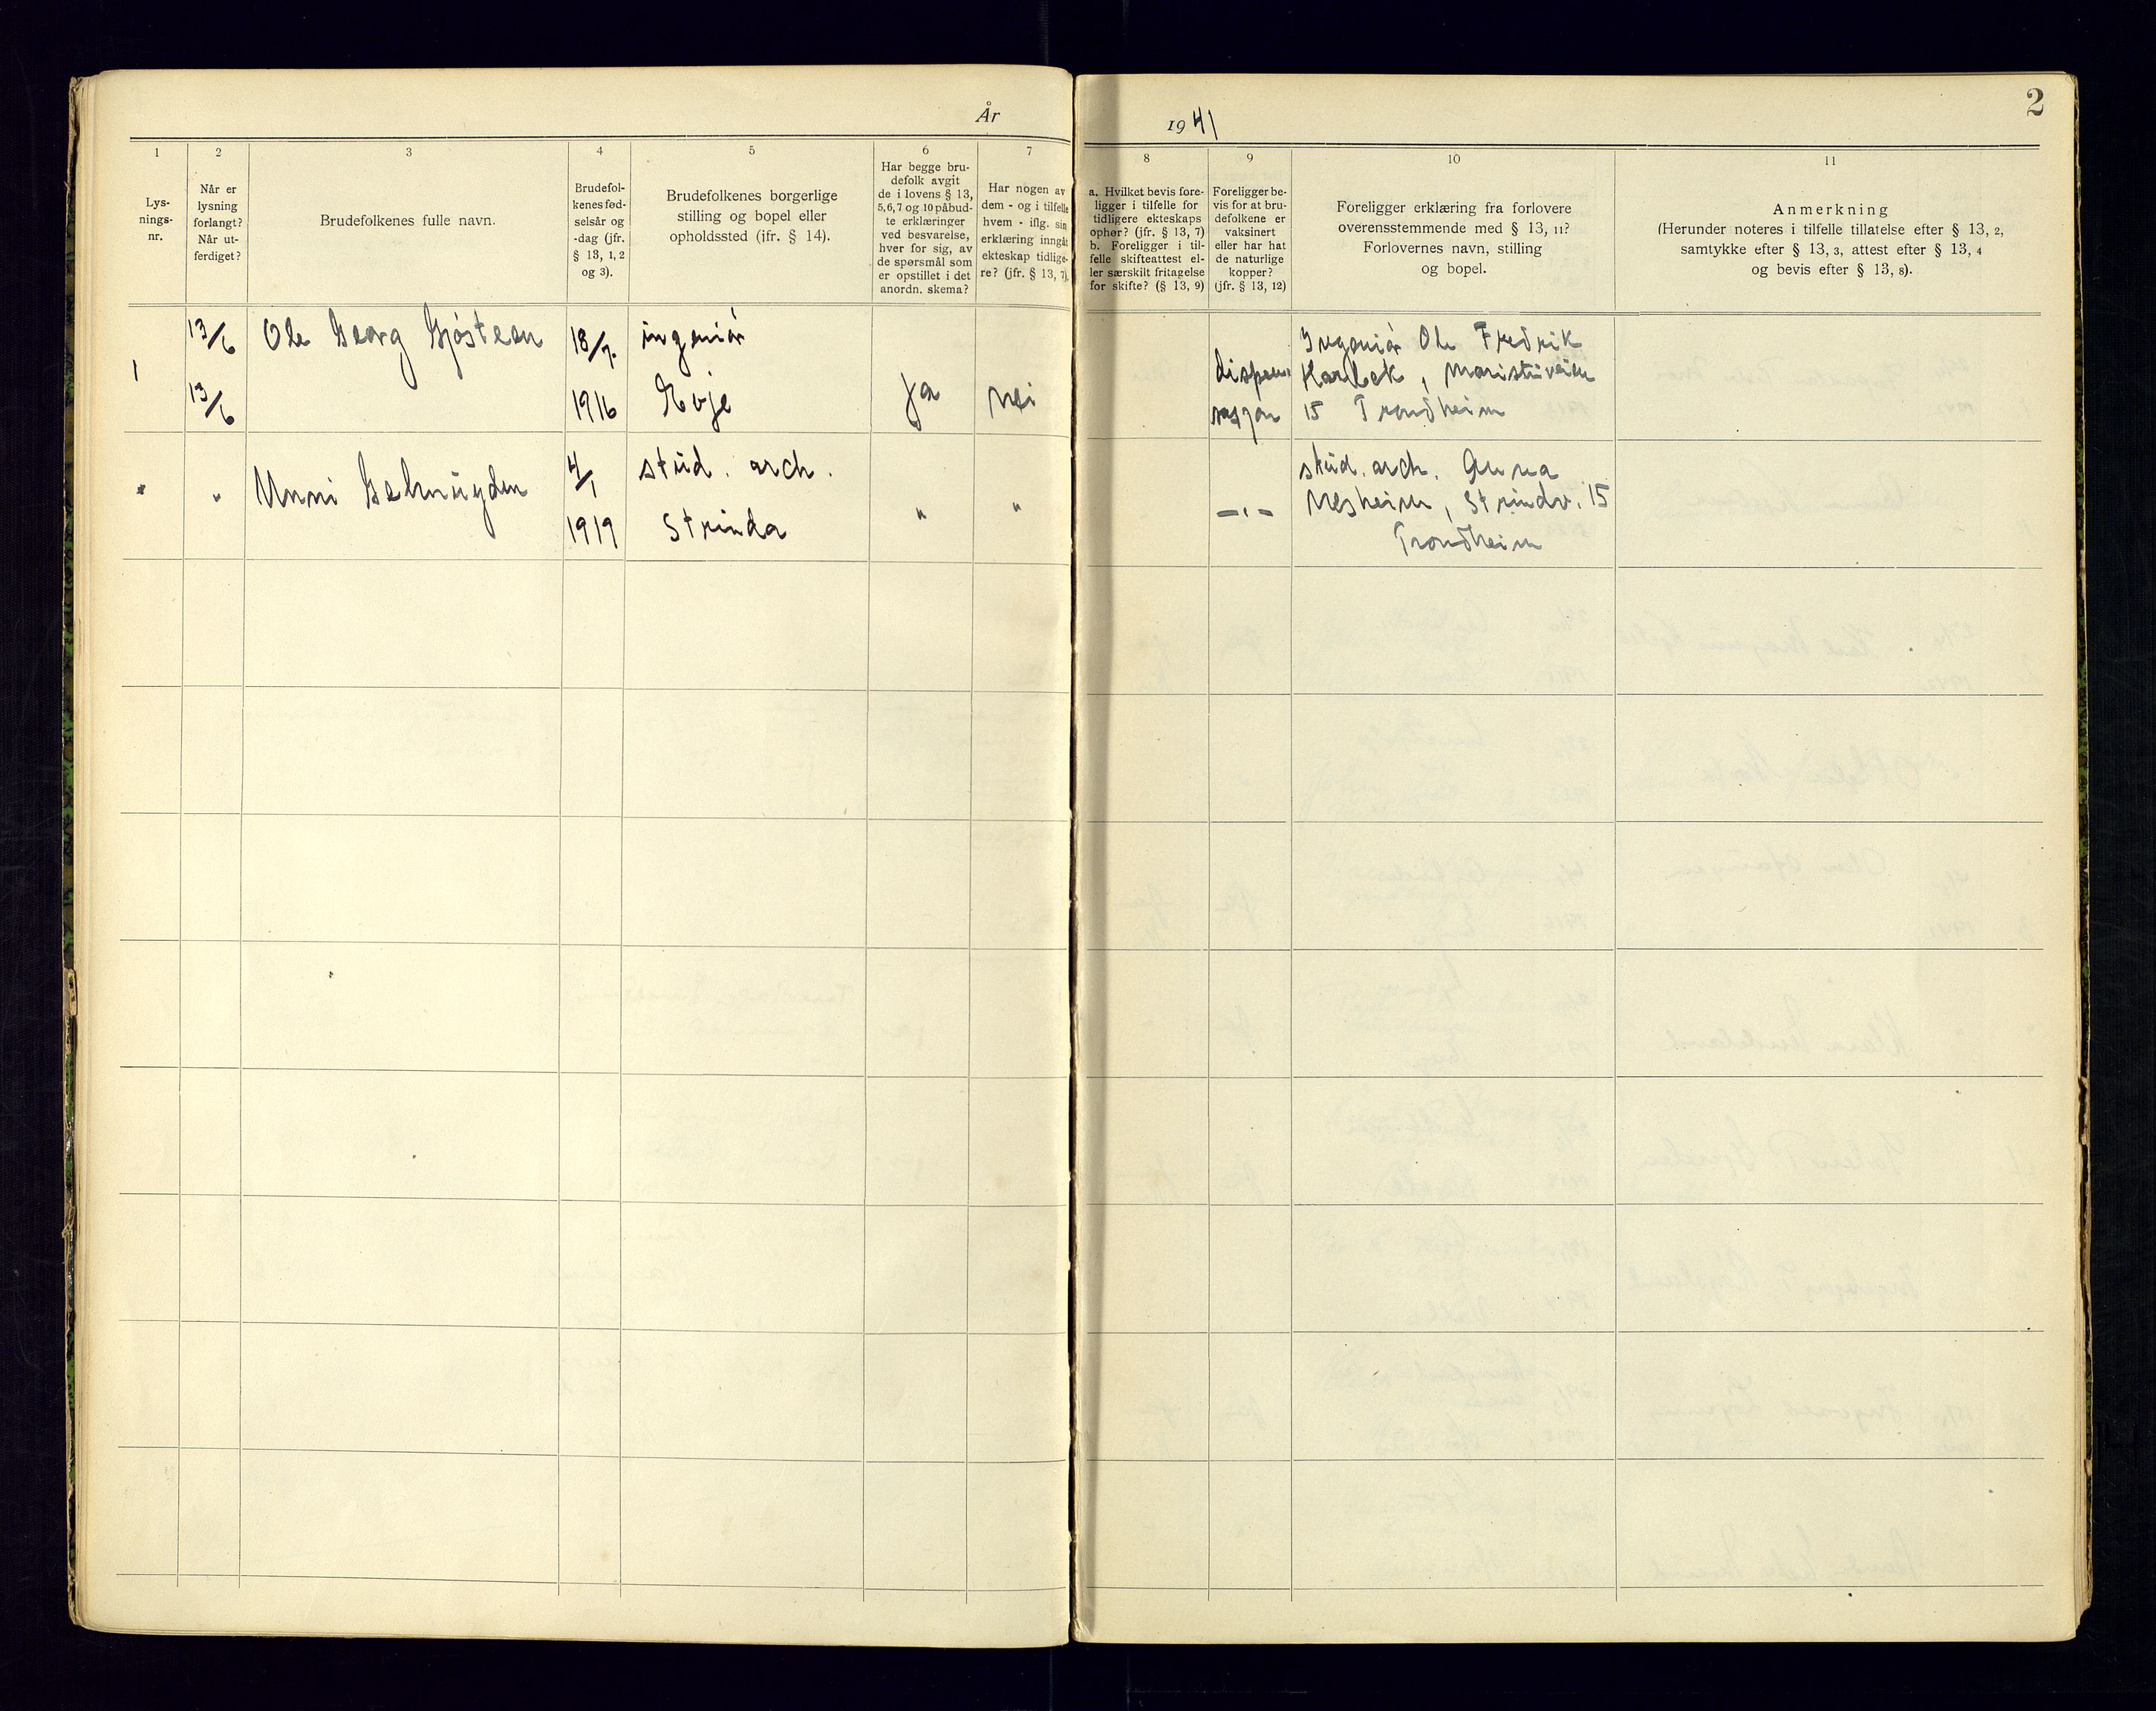 År
1941
2
1
Lys-
nings-
nr.
2
Når er
lysning
forlangt?
Når ut-
ferdiget?
3
Brudefolkenes fulle navn.
4
Brudefol-
kenes fød-
selsår og
-dag (jfr.
§ 13, 1, 2
og 3).
5
Brudefolkenes borgerlige
stilling og bopel eller
opholdssted (jfr. § 14).
6
Har begge bru-
defolk avgit
de i lovens § 13,
5,6,7 og 10 påbud-
te erklæringer
ved besvarelse,
hver for sig, av
de spørsmål som
er opstillet i det
anordn. skema?
7
Har nogen av
dem - og i tilfelle
hvem - iflg. sin
erklæring inngåt
ekteskap tidlige-
re? (jfr. § 13, 7).
8
a. Hvilket bevis fore-
ligger i tilfelle for
tidligere ekteskaps
ophør? (jfr. § 13, 7)
b. Foreligger i til-
felle skifteattest el-
ler særskilt fritagelse
for skifte? (§ 13, 9)
9
Foreligger be-
vis for at bru-
defolkene er
vaksinert
eller har hat
de naturlige
kopper?
(jfr. § 13, 12)
10
Foreligger erklæring fra forlovere
overensstemmende med § 13, 11?
Forlovernes navn, stilling
og bopel.
11
Anmerkning
(Herunder noteres i tilfelle tillatelse efter § 13, 2,
samtykke efter § 13, 3, attest efter § 13, 4
og bevis efter § 13, 8).
1
13/6
13/6
Ole Georg Gjøsteen
18/7.
1916
ingeniør
Evje
ja
nei
dispen-
sasjon
Ingeniør Ole Fredrik
Maristuveien
15 Trondheim
"
"
Unni
4/1
1919
stud. arch.
Strinda
"
"
-"-
stud. arch.
Nesheim, Strindv. 15
Trondheim